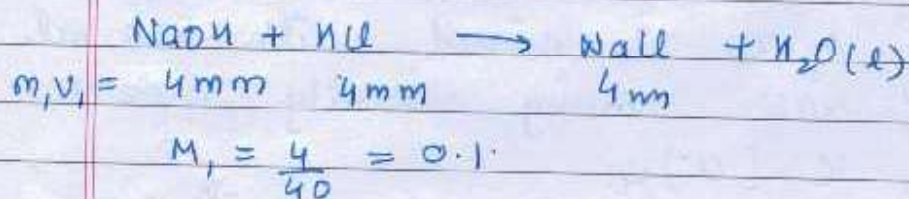 NaOH + HCl → NaCl + H₂O(l)
M₁V₁ = 4mm 4mm 4mm
M₁ = 4/40 = 0.1